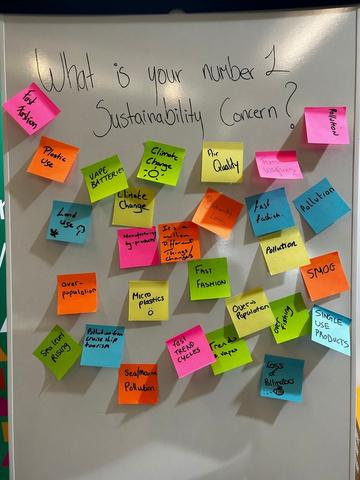 What is your number 1
Sustainability Concern?
Fast
Fashion
Pollution
Plastic
Use
VAPE
BATTERIES
Climate
Change
Air
Quality
Climate
Change
Land
use
Manufacturing
by-products
It's a
million
Different
Things
Fast
Fashion
Pollution
Pollution
SMOG
over-
population
Micro
plastics
FAST
FASHION
Over-
Population
over
fishing
SINGLE
USE
PRODUCTS
Sea level
Rising
Pollution from
cruise ship
tourism
FAST
TREND
CYCLES
Trends
vapes
Sea/Marine
Pollution
Loss
of
Pollinators